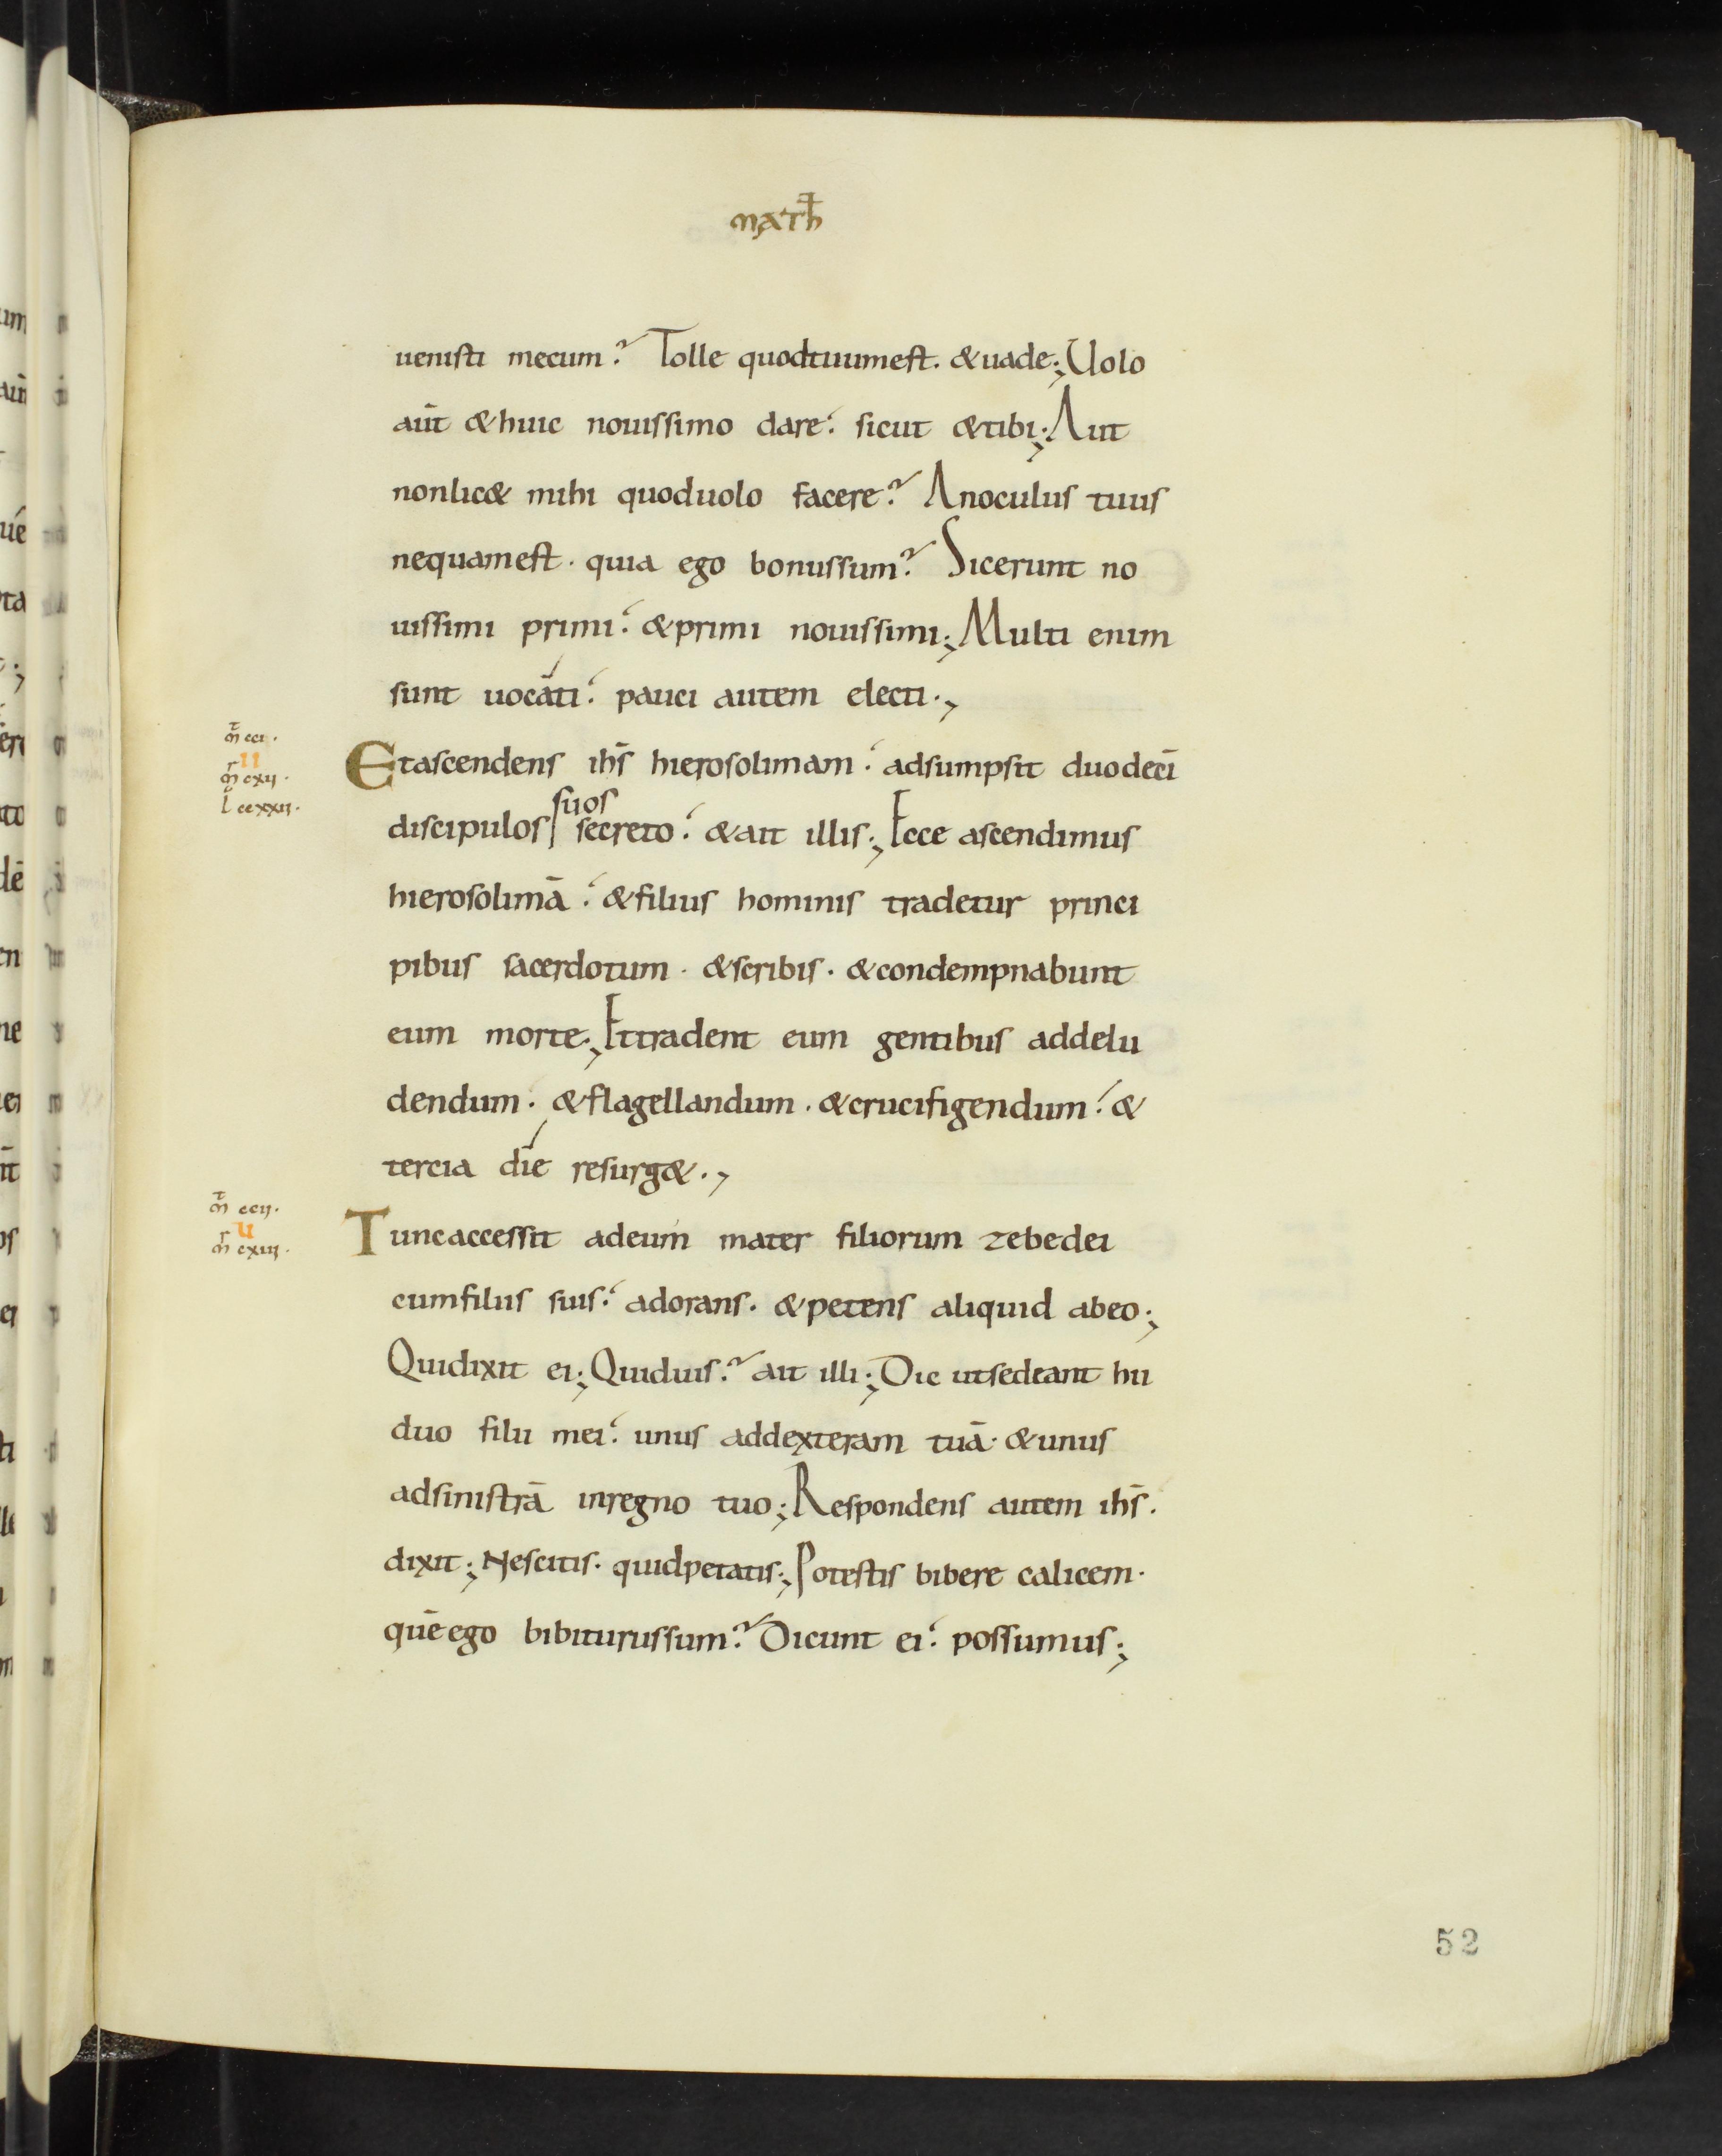 math
uenisti mecum? Tolle quodtuumest. &uade; Uolo
aūt &huic nouissimo dare: sicut &tibi; Aut
nonlic& mihi quoduolo facere? Anoculus tuus
nequamest. quia ego bonussum? Sicerunt no
uissimi primi: &primi nouissimi; Multi enim
sunt uocati: pauci autem electi.,
mt cci.
Etascendens ihs̄ hierosolimam: adsumpsit duodecī
ii
mr cxii.
l ccxxii.
suos
discipulos secreto: &ait illis; Ecce ascendimus
hierosolimā: &filius hominis tradetur princi
pibus sacerdotum. &scribis. &condempnabunt
eum morte; Ettradent eum gentibus addelu
dendum. &flagellandum. &crucifigendum: &
tercia die resurg&.,
mt ccii.
ui
mr cxiii.
Tuncaccessit adeum mater filiorum zebedei
cumfiliis suis: adorans. &petens aliquid abeo;
Quidixit ei; Quiduis? ait illi; Dic utsedeant hii
duo filii mei: unus addexteram tuā. &unus
adsinistrā inregno tuo; Respondens autem ihs̄.
dixit; Nescitis. quidpetatis; Potestis bibere calicem.
quēego bibiturussum? Dicunt ei: possumus;
52